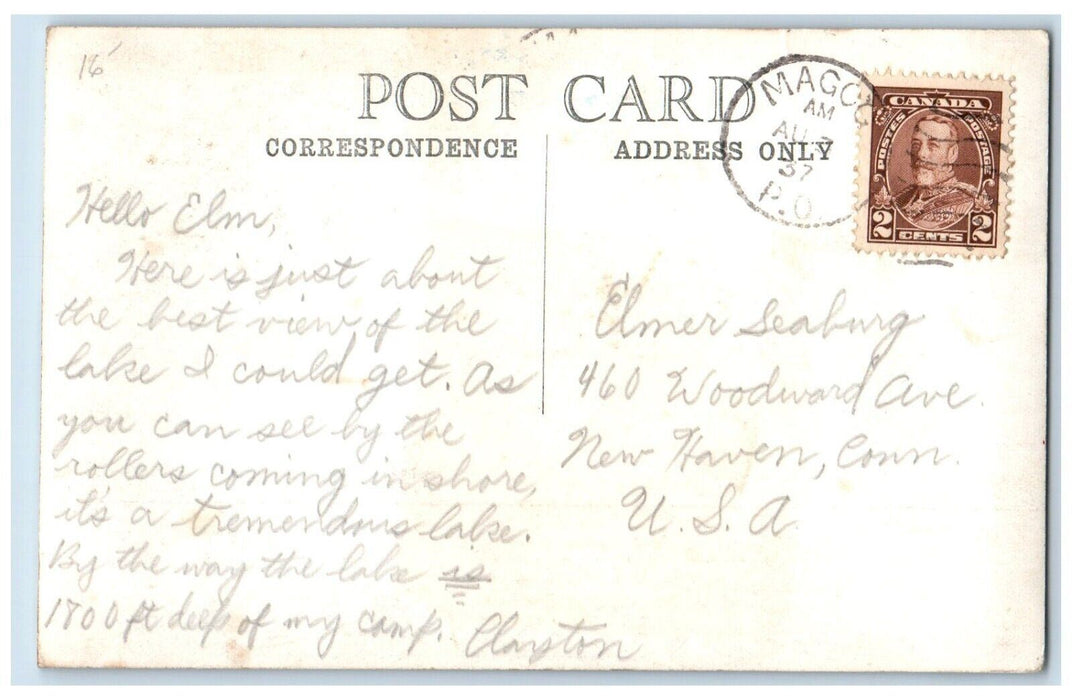 16
POST CARD
CORRESPONDENCE
ADDRESS ONLY
MAGOG
AM
AU
37
P.Q.
CANADA
POSTES POSTAGE
2 CENTS 2
Hello Elm,
Here is just about
the best view of the
lake I could get. As
you can see by the
rollers coming in shore,
it's a tremendous lake.
By the way the lake is
1700 ft deep of my camp. Clayton
Elmer Seaburg
460 Woodward Ave.
New Haven, Conn.
U. S. A.